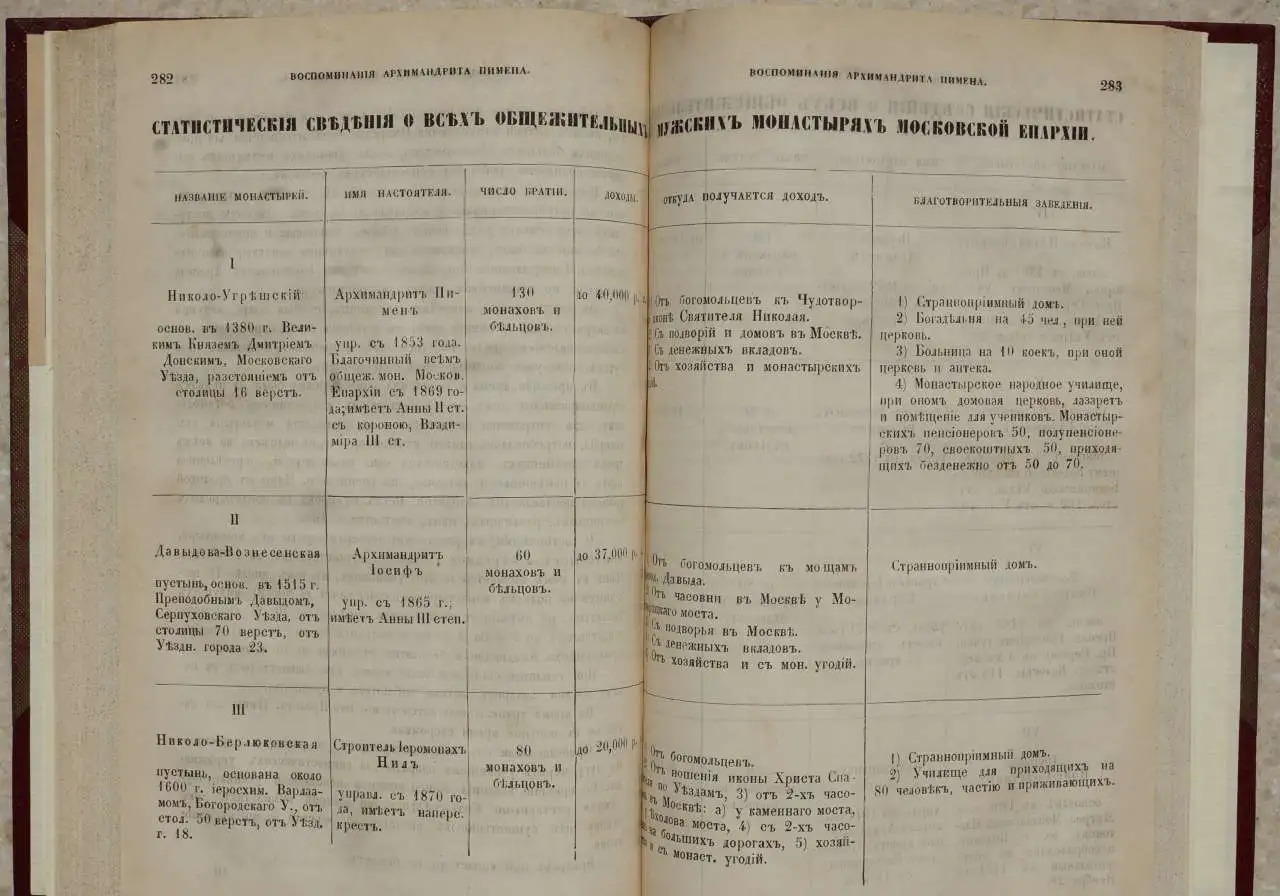 282
ВОСПОМИНАНІЯ АРХИМАНДРИТА ПИМЕНА.
СТАТИСТИЧЕСКІЯ СВѢДѢНІЯ О ВСѢХЪ ОБЩЕЖИТЕЛЬНЫХЪ
НАЗВАНІЕ МОНАСТЫРЕЙ.
ИМЯ НАСТОЯТЕЛЯ.
ЧИСЛО БРАТІИ.
ДОХОДЫ.
I
Николо-Угрѣшскій
основ. въ 1380 г. Вели-
кимъ Княземъ Дмитріемъ
Донскимъ, Московскаго
Уѣзда, разстояніемъ отъ
столицы 16 верстъ.
Архимандритъ Пи-
менъ
упр. съ 1853 года.
Благочинный всѣмъ
общеж. мон. Москов.
Епархіи съ 1869 го-
да; имѣетъ Анны II ст.
съ короною, Влади-
міра III ст.
130
монаховъ и
бѣльцовъ.
до 40,000 р.
II
Давыдова-Вознесенская
пустынь, основ. въ 1515 г.
Преподобнымъ Давыдомъ,
Серпуховскаго Уѣзда, отъ
столицы 70 верстъ, отъ
Уѣздн. города 23.
Архимандритъ
Іосифъ
упр. съ 1865 г.;
имѣетъ Анны III степ.
60
монаховъ и
бѣльцовъ.
до 37,000 р.
III
Николо-Берлюковская
пустынь, основана около
1600 г. іеросхим. Варлаа-
момъ, Богородскаго У., отъ
стол. 50 верстъ, отъ Уѣзд.
г. 18.
Строитель Іеромонахъ
Нилъ
управл. съ 1870 го-
да, имѣетъ наперс.
крестъ.
80
монаховъ и
бѣльцовъ.
до 20,000 р.
ВОСПОМИНАНІЯ АРХИМАНДРИТА ПИМЕНА.
283
МУЖСКИХЪ МОНАСТЫРЯХЪ МОСКОВСКОЙ ЕПАРХІИ.
ОТКУДА ПОЛУЧАЕТСЯ ДОХОДЪ.
БЛАГОТВОРИТЕЛЬНЫЯ ЗАВЕДЕНІЯ.
Отъ богомольцевъ къ Чудотвор-
Святителя Николая.
Съ подворій и домовъ въ Москвѣ.
Съ денежныхъ вкладовъ.
Отъ хозяйства и монастырскихъ
1) Страннопріимный домъ.
2) Богадѣльня на 45 чел., при ней
церковь.
3) Больница на 10 коекъ, при оной
церковь и аптека.
4) Монастырское народное училище,
при ономъ домовая церковь, лазаретъ
и помѣщеніе для учениковъ. Монастыр-
скихъ пенсіонеровъ 50, полупенсіоне-
ровъ 70, своекоштныхъ 50, приходя-
щихъ безденежно отъ 50 до 70.
Отъ богомольцевъ къ мощамъ
Давыда.
Отъ часовни въ Москвѣ у Мо-
моста.
Съ подворья въ Москвѣ.
Съ денежныхъ вкладовъ.
Отъ хозяйства и съ мон. угодій.
Страннопріимный домъ.
Отъ богомольцевъ.
Отъ ношенія иконы Христа Спа-
по Уѣздамъ, 3) отъ 2-хъ часо-
въ Москвѣ: а) у каменнаго моста,
моста, 4) съ 2-хъ часо-
большихъ дорогахъ, 5) хозяй-
съ монаст. угодій.
1) Страннопріимный домъ.
2) Училище для приходящихъ на
80 человѣкъ, частію и приживающихъ.